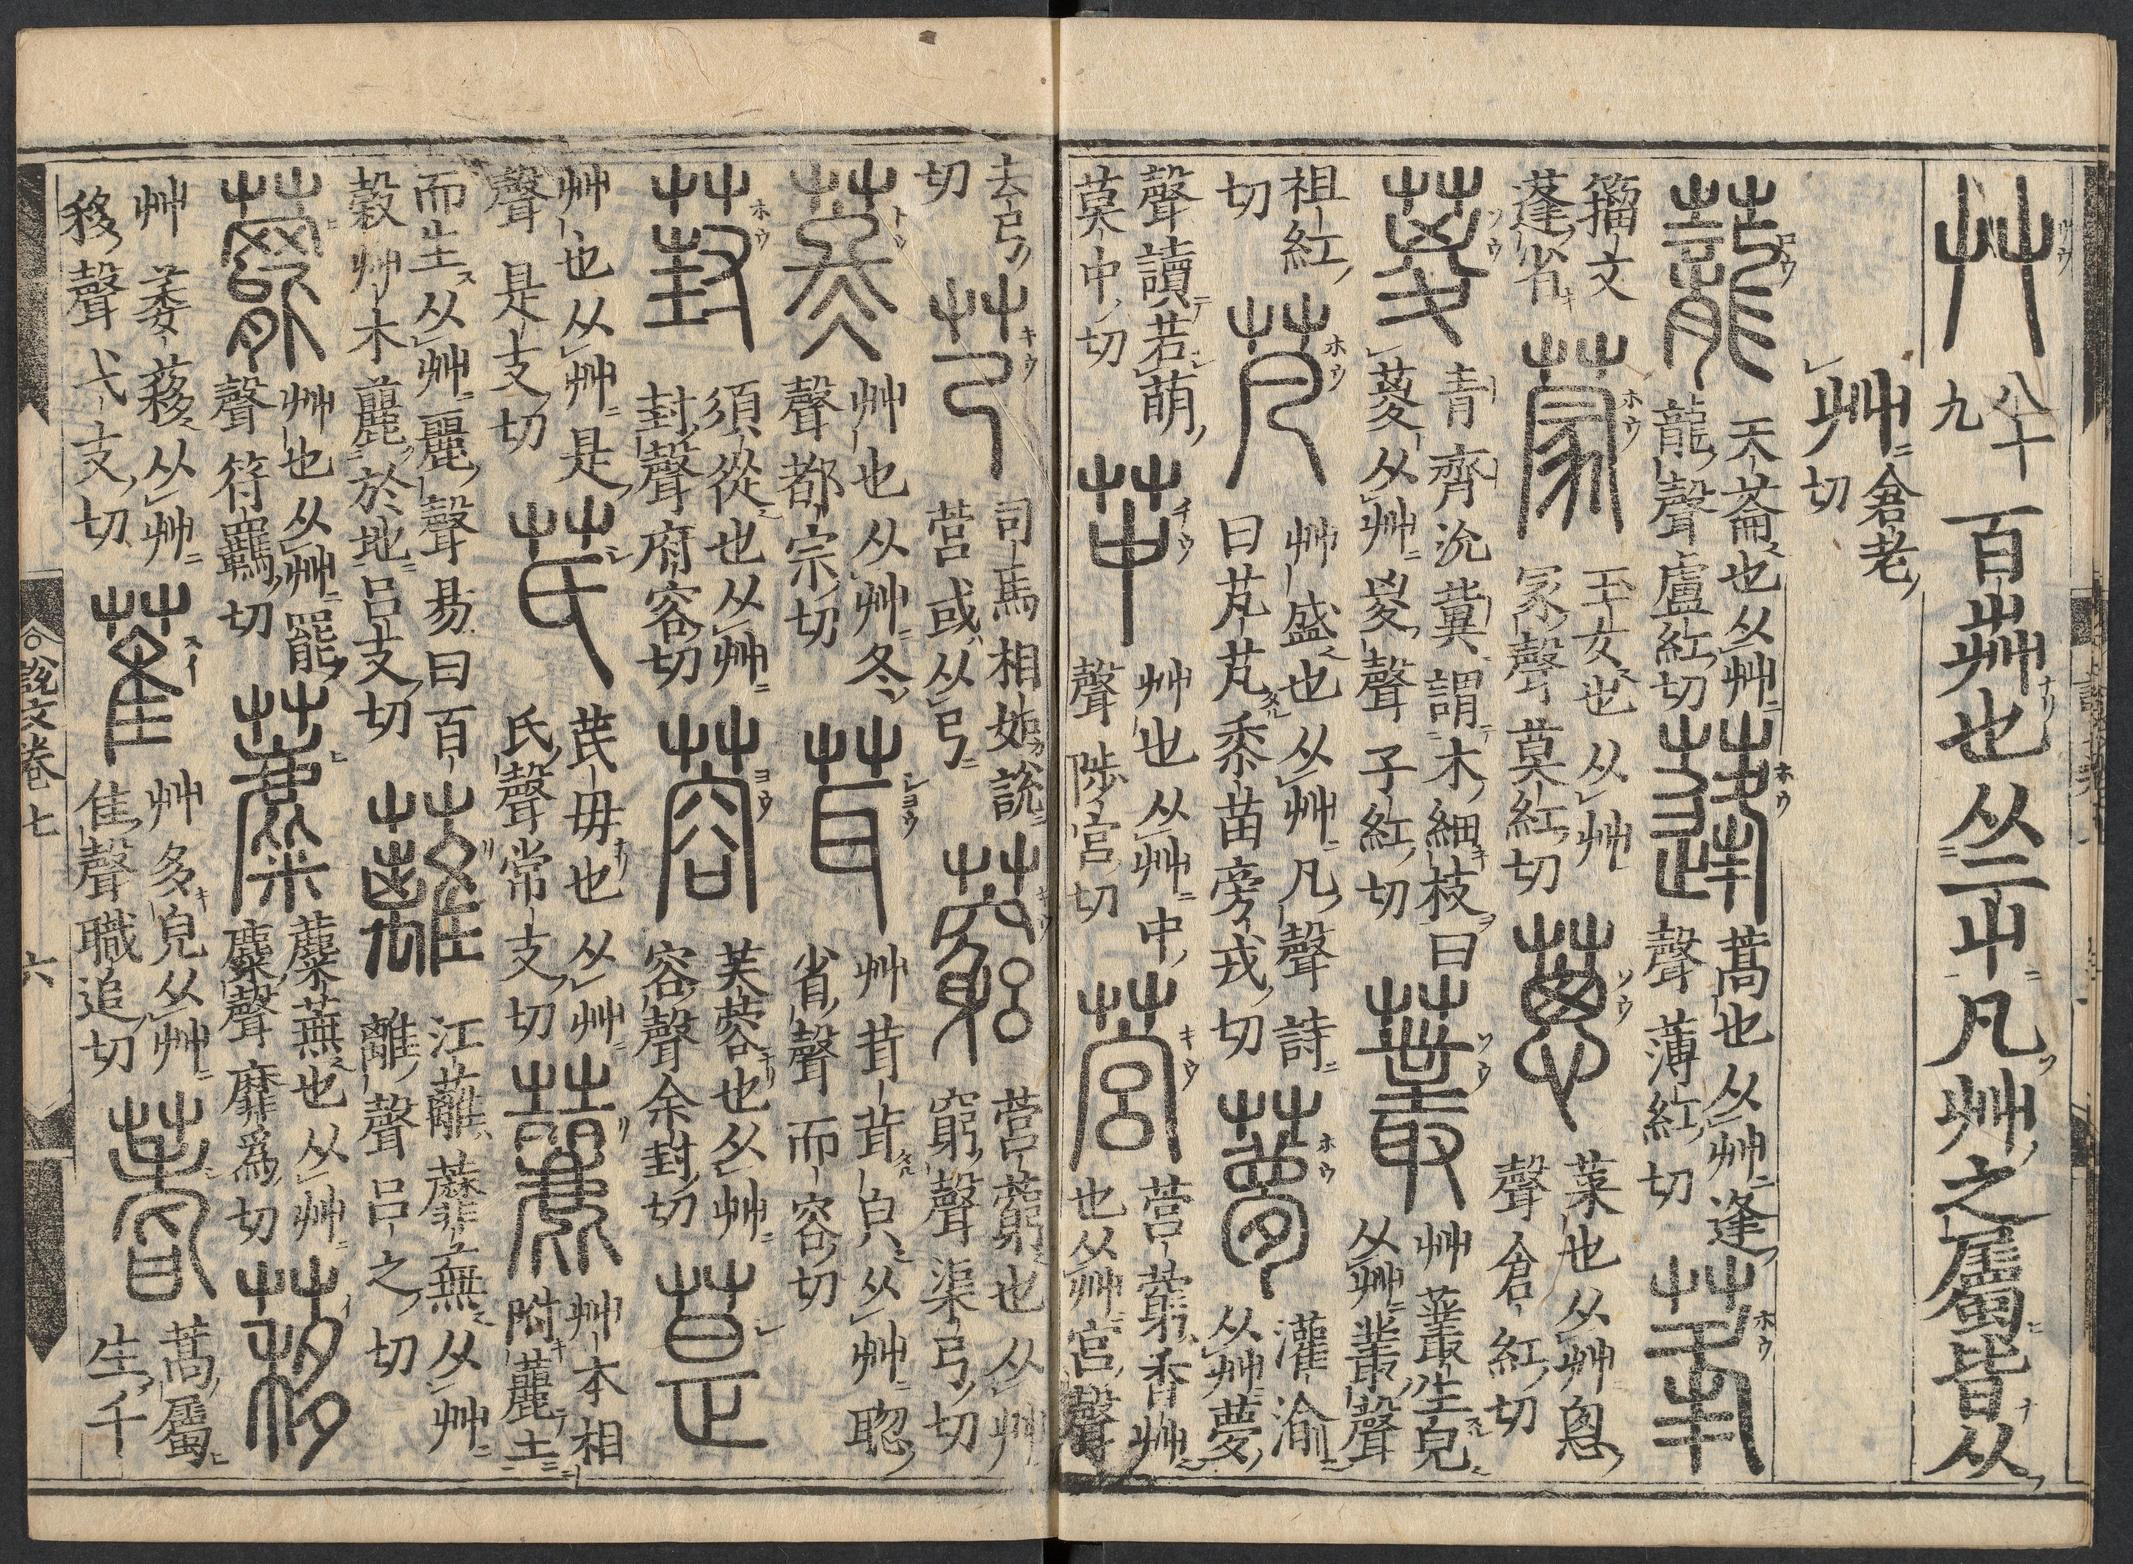 艸 八十九 百芔也从二屮凡艸之屬皆从
艸倉老切
蘢 天蘥也从艸龍聲盧紅切 蓬 蒿也从艸逢聲薄紅切 莑
籀文蓬省 蒙 王女也从艸冡聲莫紅切 蔥 菜也从艸悤聲倉紅切
葼 青齊沇冀謂木細枝曰葼从艸㚇聲子紅切 叢 艸叢生皃从艸叢聲
祖紅切 芃 艸盛也从艸凡聲詩曰芃芃黍苗房戎切 夢 灌渝从艸夢
聲讀若萌莫中切 苹 艸也从艸中聲陟宮切 营 营藭香艸也从艸宮聲
去弓切 芎 司馬相如說营或从弓 藭 营藭也从艸窮聲渠弓切
苳 艸也从艸冬聲都宗切 茸 艸茸茸皃从艸聦省聲而容切
葑 須從也从艸封聲府容切 蓉 芙蓉也从艸容聲余封切 莡
艸也从艸是聲是支切 芪 芪母也从艸氏聲常支切 䕻 艸木相附䕻土
而生从艸麗聲易曰百穀艸木䕻於地呂支切 蘺 江蘺蘼蕪从艸離聲呂之切
䕢 艸也从艸罷聲符羈切 蘪 蘪蕪也从艸麋聲靡爲切 移
艸萎蓩从艸移聲弋支切 萑 艸多皃从艸隹聲職追切 蓍 蒿屬生千
說文卷七 六